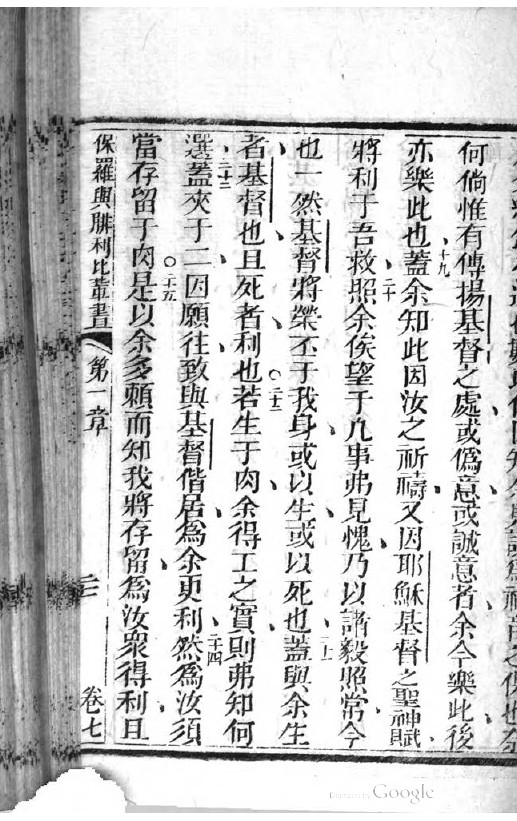 何倘惟有傳揚基督之處或偽意或誠意者余今樂此後
亦樂此也十九蓋余知此因汝之祈禱又因耶穌基督之聖神賦
將利于吾救二十照余俟望于凡事弗見愧乃以諸毅照常今
也一然基督將榮丕于我身或以生或以死也二十一蓋與余生
者基督也且死者利也二十二若生于肉余得工之實則弗知何
選二十三蓋夾于二因願往致與基督偕居為余更利二十四然為汝須
當存留于肉二十五是以余多賴而知我將存留為汝眾得利且
保羅與腓利比輩書 第一章 二 卷七
Digitized by Google